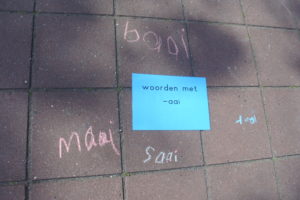 baai
woorden met
-aai
maai
saai